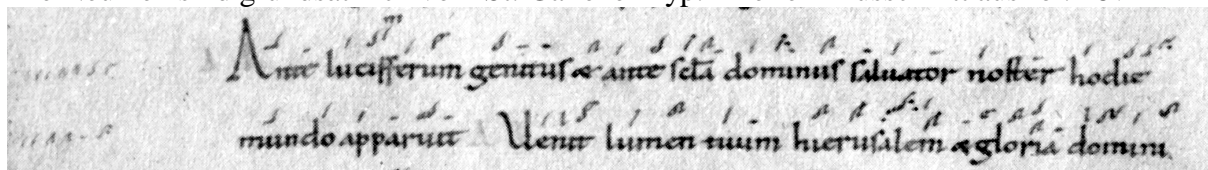 Ante lucifferum genitus & ante scła dominus saluator noster hodie
mundo apparuit Uenit lumen tuum hierusalem & gloria domini